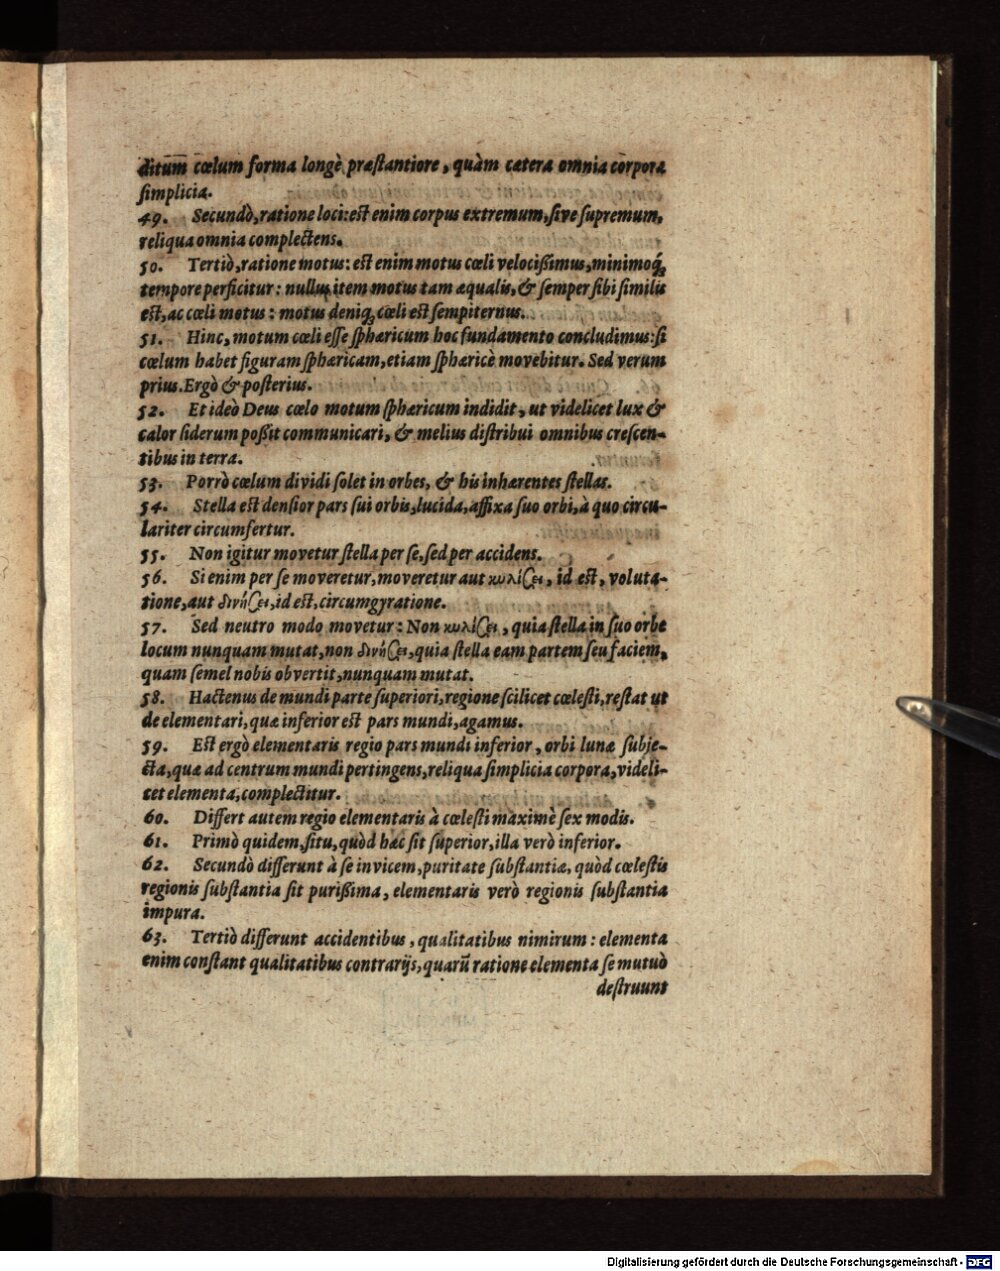 ditum cœlum forma longè præſtantiore, quàm cætera omnia corpora
ſimplicia.
49. Secundò, ratione loci: est enim corpus extremum, ſive ſupremum,
reliqua omnia complectens.
50. Tertiò, ratione motus: est enim motus cœli velocißimus, minimoq́;
tempore perficitur: nullus item motus tam æqualis, & ſemper ſibi ſimilis
est, ac cœli motus: motus deniq; cœli est ſempiternus.
51. Hinc, motum cœli eſſe ſphæricum hoc fundamento concludimus: ſi
cœlum habet figuram ſphæricam, etiam ſphæricè movebitur. Sed verum
prius. Ergò & poſterius.
52. Et ideò Deus cœlo motum ſphæricum indidit, ut videlicet lux &
calor ſiderum poßit communicari, & melius diſtribui omnibus creſcen-
tibus in terra.
53. Porrò cœlum dividi ſolet in orbes, & his inhærentes ſtellas.
54. Stella est denſior pars ſui orbis, lucida, affixa ſuo orbi, à quo circu-
lariter circumfertur.
55. Non igitur movetur ſtella per ſe, ſed per accidens.
56. Si enim per ſe moveretur, moveretur aut κυλίσει, id est, voluta-
tione, aut δινήσει, id est, circumgyratione.
57. Sed neutro modo movetur: Non κυλίσει, quia ſtella in ſuo orbe
locum nunquam mutat, non δινήσει, quia ſtella eam partem ſeu faciem,
quam ſemel nobis obvertit, nunquam mutat.
58. Hactenus de mundi parte ſuperiori, regione ſcilicet cœleſti, reſtat ut
de elementari, quæ inferior est pars mundi, agamus.
59. Est ergò elementaris regio pars mundi inferior, orbi lunæ ſubje-
cta, quæ ad centrum mundi pertingens, reliqua ſimplicia corpora, videli-
cet elementa, complectitur.
60. Differt autem regio elementaris à cœleſti maximè ſex modis.
61. Primò quidem, ſitu, quòd hæc ſit ſuperior, illa verò inferior.
62. Secundò differunt à ſe invicem, puritate ſubſtantiæ, quòd cœleſtis
regionis ſubſtantia ſit purißima, elementaris verò regionis ſubſtantia
impura.
63. Tertiò differunt accidentibus, qualitatibus nimirum: elementa
enim conſtant qualitatibus contrarijs, quarū ratione elementa ſe mutuò
deſtruunt
Digitalisierung gefördert durch die Deutsche Forschungsgemeinschaft - DFG